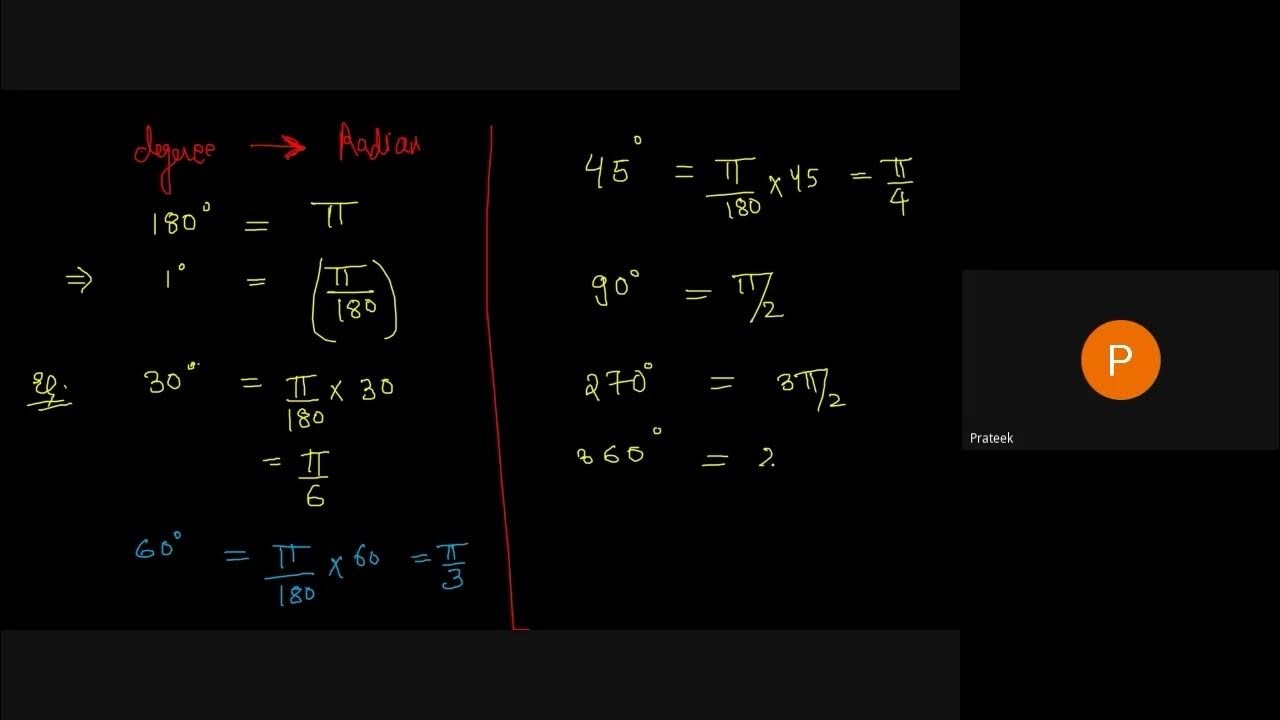 degree → Radian
180° = π
⇒ 1° = (π/180)
eg. 30° = π/180 × 30
= π/6
60° = π/180 × 60 = π/3
45° = π/180 × 45 = π/4
90° = π/2
270° = 3π/2
360° = 2
P
Prateek